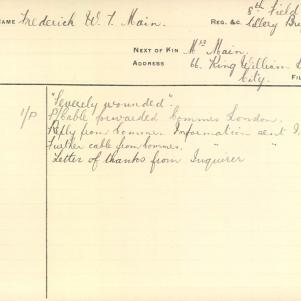 NAME Frederick W. T. Main. REG. &C. 8th Field
NEXT OF KIN Mrs Main.
ADDRESS 66. King William
City.
"Severely wounded"
1/P P/Cable forwarded Commrs London.
Reply from Commrs. Information sent
Further cable from Commrs. " "
Letter of thanks from Inquirer